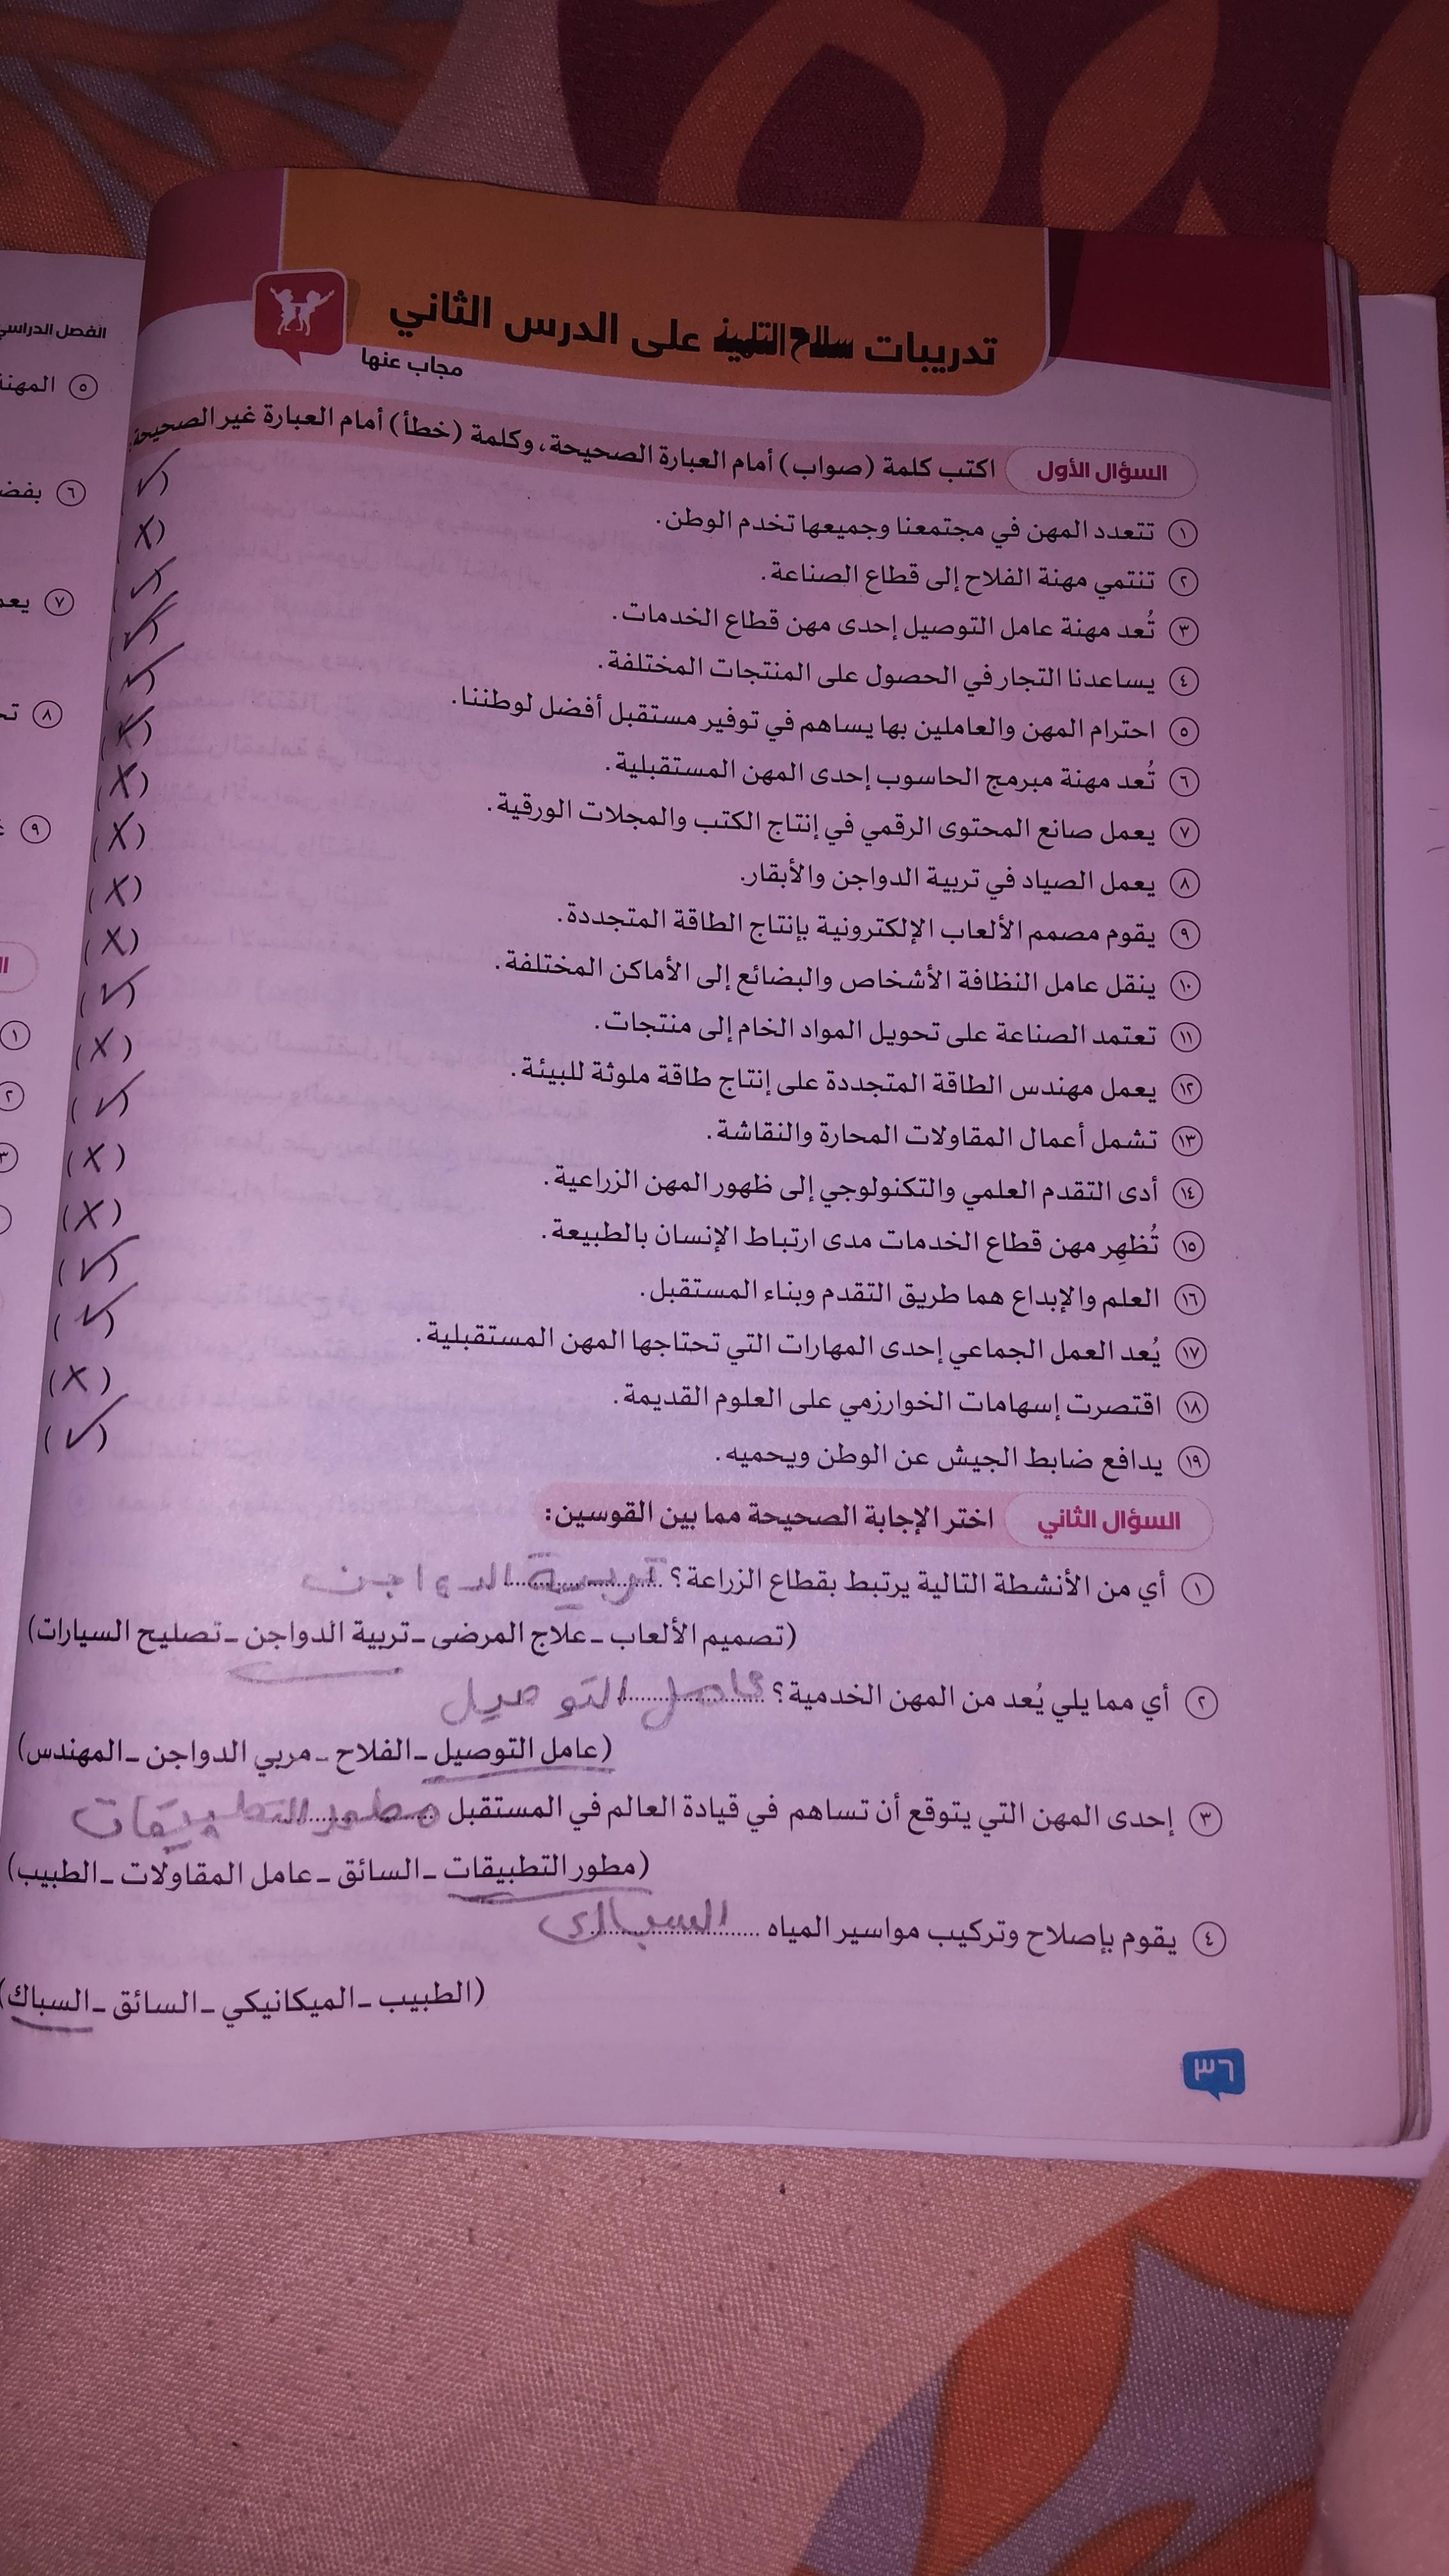 تدريبات سلاح التلميذ على الدرس الثاني
مجاب عنها
السؤال الأول اكتب كلمة (صواب) أمام العبارة الصحيحة، وكلمة (خطأ) أمام العبارة غير الصحيحة:
١ تتعدد المهن في مجتمعنا وجميعها تخدم الوطن. (✓)
٢ تنتمي مهنة الفلاح إلى قطاع الصناعة. (X)
٣ تُعد مهنة عامل التوصيل إحدى مهن قطاع الخدمات. (✓)
٤ يساعدنا التجار في الحصول على المنتجات المختلفة. (✓)
٥ احترام المهن والعاملين بها يساهم في توفير مستقبل أفضل لوطننا. (✓)
٦ تُعد مهنة مبرمج الحاسوب إحدى المهن المستقبلية.
٧ يعمل صانع المحتوى الرقمي في إنتاج الكتب والمجلات الورقية. (X)
٨ يعمل الصياد في تربية الدواجن والأبقار. (X)
٩ يقوم مصمم الألعاب الإلكترونية بإنتاج الطاقة المتجددة. (X)
١٠ ينقل عامل النظافة الأشخاص والبضائع إلى الأماكن المختلفة. (X)
١١ تعتمد الصناعة على تحويل المواد الخام إلى منتجات. (✓)
١٢ يعمل مهندس الطاقة المتجددة على إنتاج طاقة ملوثة للبيئة. (X)
١٣ تشمل أعمال المقاولات المحارة والنقاشة. (✓)
١٤ أدى التقدم العلمي والتكنولوجي إلى ظهور المهن الزراعية. (X)
١٥ تُظهِر مهن قطاع الخدمات مدى ارتباط الإنسان بالطبيعة. (X)
١٦ العلم والإبداع هما طريق التقدم وبناء المستقبل. (✓)
١٧ يُعد العمل الجماعي إحدى المهارات التي تحتاجها المهن المستقبلية. (✓)
١٨ اقتصرت إسهامات الخوارزمي على العلوم القديمة. (X)
١٩ يدافع ضابط الجيش عن الوطن ويحميه. (✓)
السؤال الثاني اختر الإجابة الصحيحة مما بين القوسين:
١ أي من الأنشطة التالية يرتبط بقطاع الزراعة؟ تربية الدواجن
(تصميم الألعاب - علاج المرضى - تربية الدواجن - تصليح السيارات)
٢ أي مما يلي يُعد من المهن الخدمية؟ عامل التوصيل
(عامل التوصيل - الفلاح - مربي الدواجن - المهندس)
٣ إحدى المهن التي يتوقع أن تساهم في قيادة العالم في المستقبل مطور التطبيقات
(مطور التطبيقات - السائق - عامل المقاولات - الطبيب)
٤ يقوم بإصلاح وتركيب مواسير المياه السباك
(الطبيب - الميكانيكي - السائق - السباك)
٣٦
الفصل الدراسي
٥ المهنة
٦
٧
٨
٩
١
٢
٣